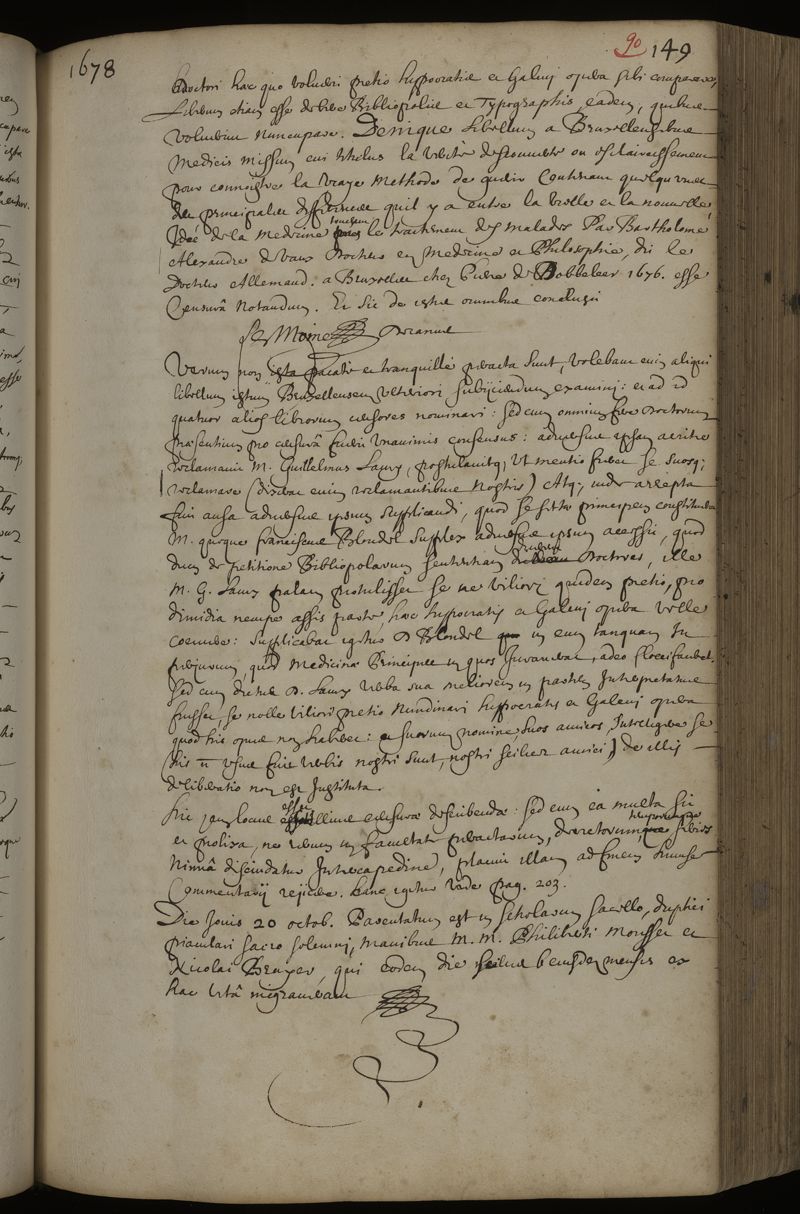 1678
90 149
Doctori hac quo voluerit pretio hyppocratis et Galenj opera sibi comparare,
Liberum etiam esse debere Bibliopolis et Typographis, eadem, quibus
voluerint nuncupare. Denique libellum a Bruxellensibus
Medicis missum cui titulus la verité descouverte ou esclaircissement
pour connoistre la vraye Methode de guerir Contenant quelqu'unes
des principales differences quil y a entre la vieille et la nouvelle
Idée de la Medecine touchant le traictement des malades Par Bartholomé
Alexandre de Vaux Docteur en Medecine et Philosophie, dit le
Docteur Allemand. a Bruxelles chez Piere de Dobbeleer 1676. esse
Censurâ Notandum. Et sic de istis omnibus conclusit
Le Moine Decanus
Verum non ista pacatè et tranquillè peracta sunt, volebant enim aliqui
libellum istum Bruxellensem ulteriori subijciendum examinj: et ad id
quatuor alios librorum censores nominari: sed cum omnium fere Doctorum
præsentium pro censurâ fuerit unanimis consensus: adversus ipsam acriter
reclamavit M. Guillelmus Lamy, postulavitq; ut mentio fieret se suosq;
reclamare (dicebat enim reclamantibus Nostris) Atq; inde arrepta
fuit ansa adversus ipsum supplicandi, quod se factj principem constitueret
M. quoque Franciscus Blondel supplex adversus ipsum accessit, quod
dum de petitione Bibliopolarum sententiam dicerent Doctores, ille
M. G. Lamy palam protulisset se ne viliorj quidem pretio, pro
dimidia nempe assis parte, hæc hyppocratis et Galenj opera velle
coemere: Supplicabat igitur D Blondel in eum tanquam in
perjurum, quod Medicinæ Principes in quos Juraverat, adeo floccifaceret.
Sed cum dictus D. Lamy verba sua meliorem in partem Interpretatus
fuisset, se nolle viliori pretio Nundinari hyppocratis et Galenj opera
quod his opus non haberet: et suorum nomine suos amicos Intelligere se
(sic n usus fuit verbis nostri sunt, nostri scilicet amici) de illis
deliberatio non est Instituta.
hic jam locus esset illius censuræ describendæ: sed cum ea multa sit
et prolixa, ne rerum in facultate peractarum, decretorumque series
Nimiâ discindatur Intercapedine, placuit illam ad finem hujusce
Commentarij rejicere. hanc igitur vide pag. 203.
Die Jovis 20 octob. Parentatum est in scholarum sacello, duplici
piaculari sacro solemnj, Manibus M. M. Philiberti Morisset et
Nicolai Brayer, qui eodem die scilicet ejusdem mensis ex
hac vitâ migraverant